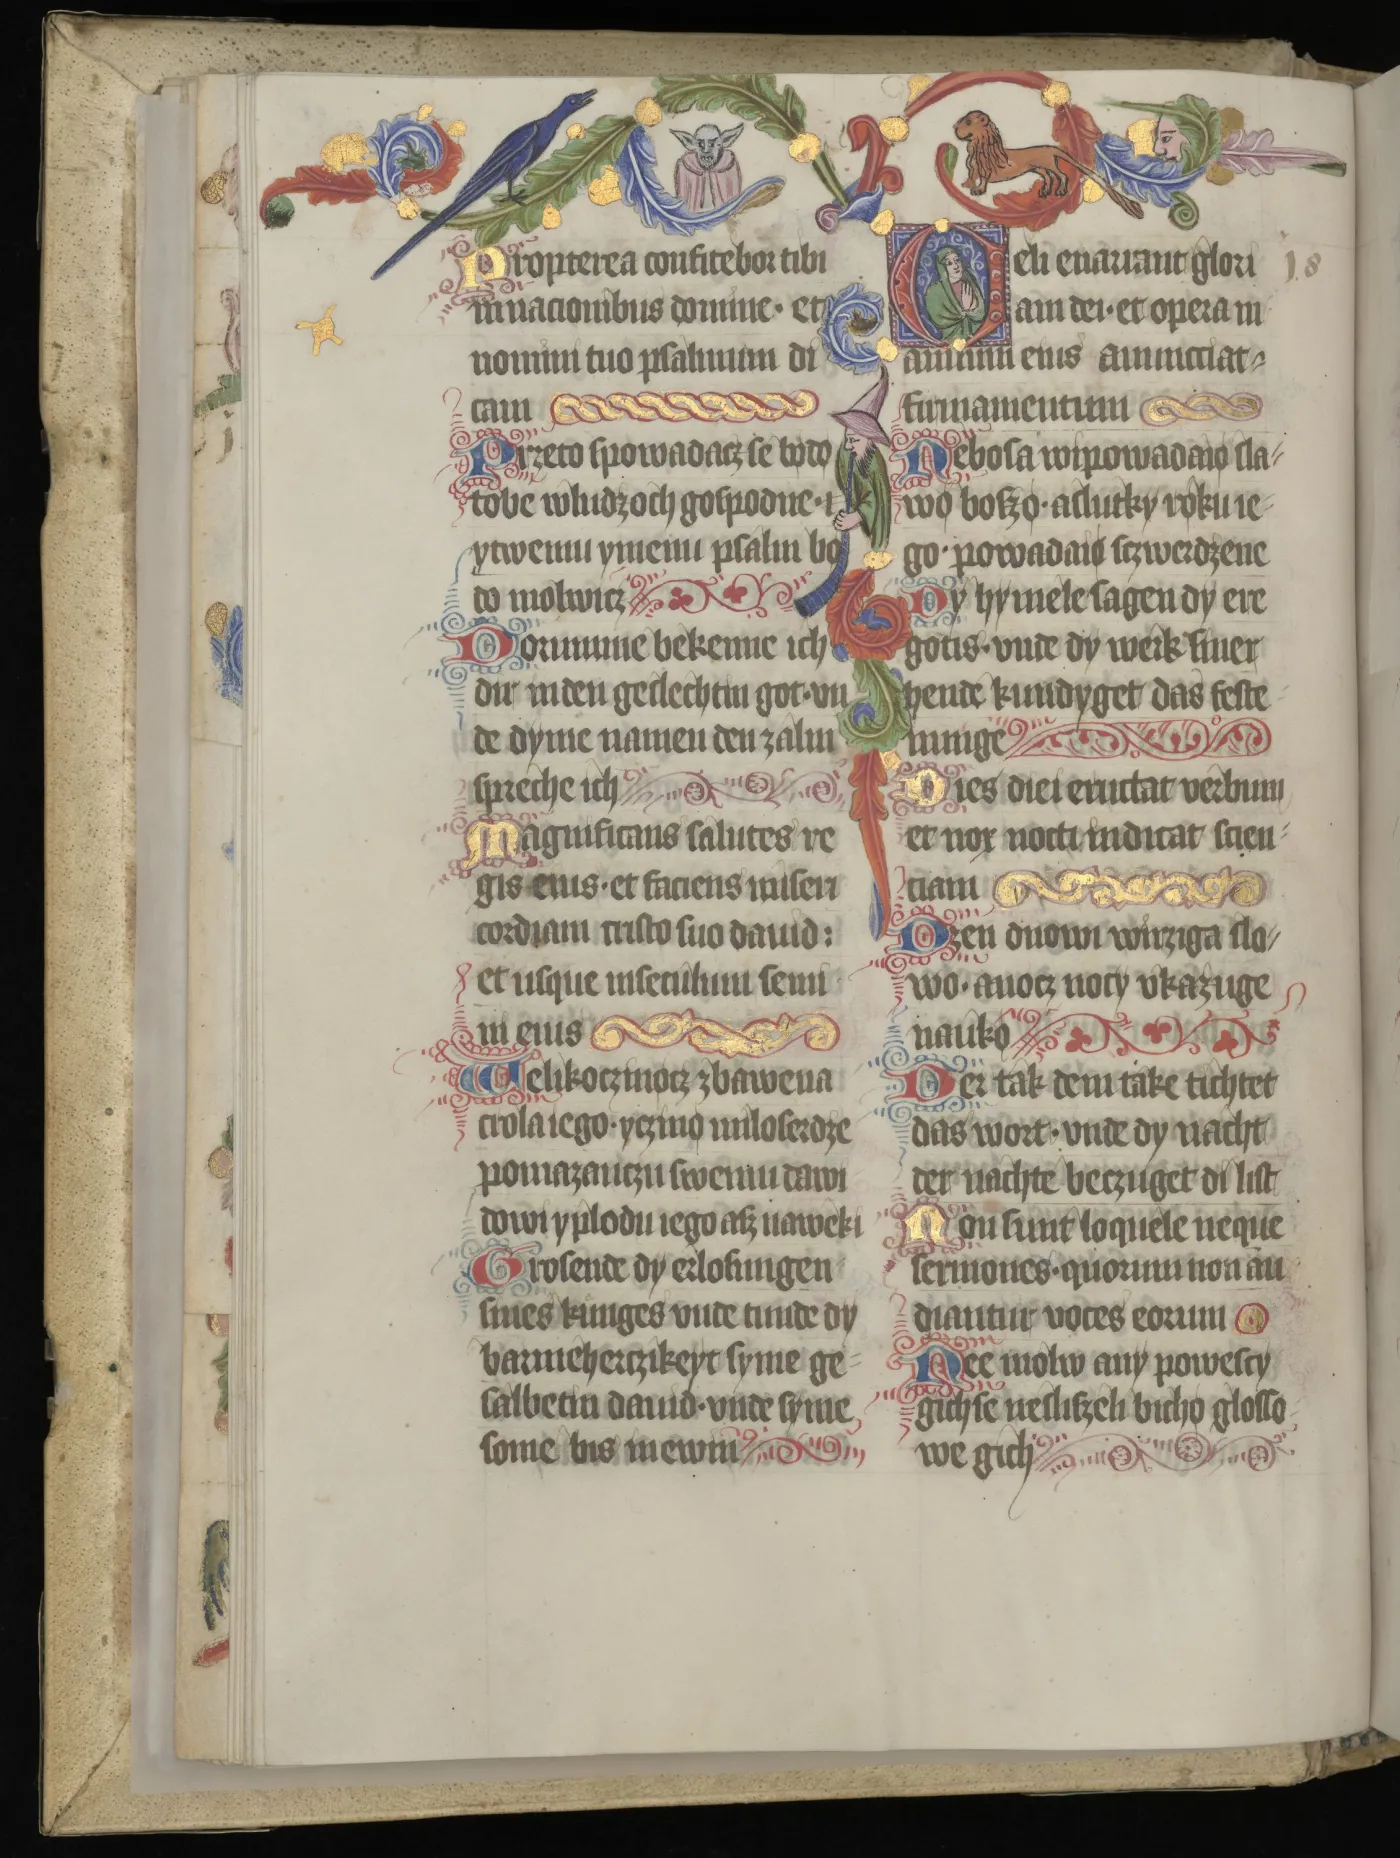 Propterea confitebor tibi
innacionibus domine · et
nomini tuo psalmum di
cam
Przeto spowadacz se bødø
tobe wludzoch gospodne · i
ytwemu ymenu psalm bø
dø molwicz
Dorumme bekenne ich
dir inden geslechtin got · vn
de dyme namen den zalm
spreche ich
Magnificans salutes re
gis eius · et faciens miseri
cordiam cristo suo dauid :
et usque inseculum semi
ni eius
Welikoczinøcz zbawena
crola iego · yczinø miloserdze
pomazanczu swemu dawi
dowi yplodu iego asz naweki
Grosende dy erlosungen
sines kuniges vnde tunde dy
barmeherczikeyt syme ge-
salbetin dauid · vnde syme
some bis in ewin
Celi enarrant glori 18
am dei · et opera m
anuum eius annucciat-
firmamentum
Nebosa wipowadaiø sla-
wø boszø · aslutky røku ie-
go · powadaiø sczwerdzene
Dy hymele sagen dy ere
gotis · vnde dy werk siner
hende kundyget das feste
nunge
Dies diei eructat verbum
et nox nocti indicat scien-
ciam
Dzen dnowi wirziga slo-
wo · anocz nocy vkazuge
naukø
Der tak dem take tichtet
das wort · vnde dy nacht
der nachte beczuget di list
Non sunt loquele neque
sermones · quorum non au
diantur voces eorum
Nee molw any powescy
gichse nesliszeli bicho glosso
we gich